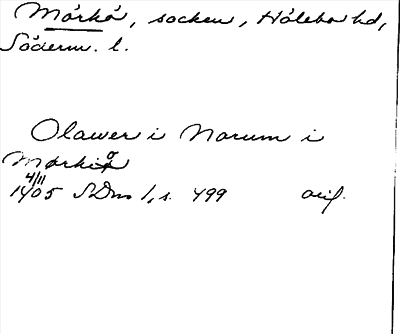 Mörkö, socken, Hölebo hd,
Söderm. l.
Olawer i Norum i
Mørkiø
4/11
1405 SDns 1, s. 499 orig.